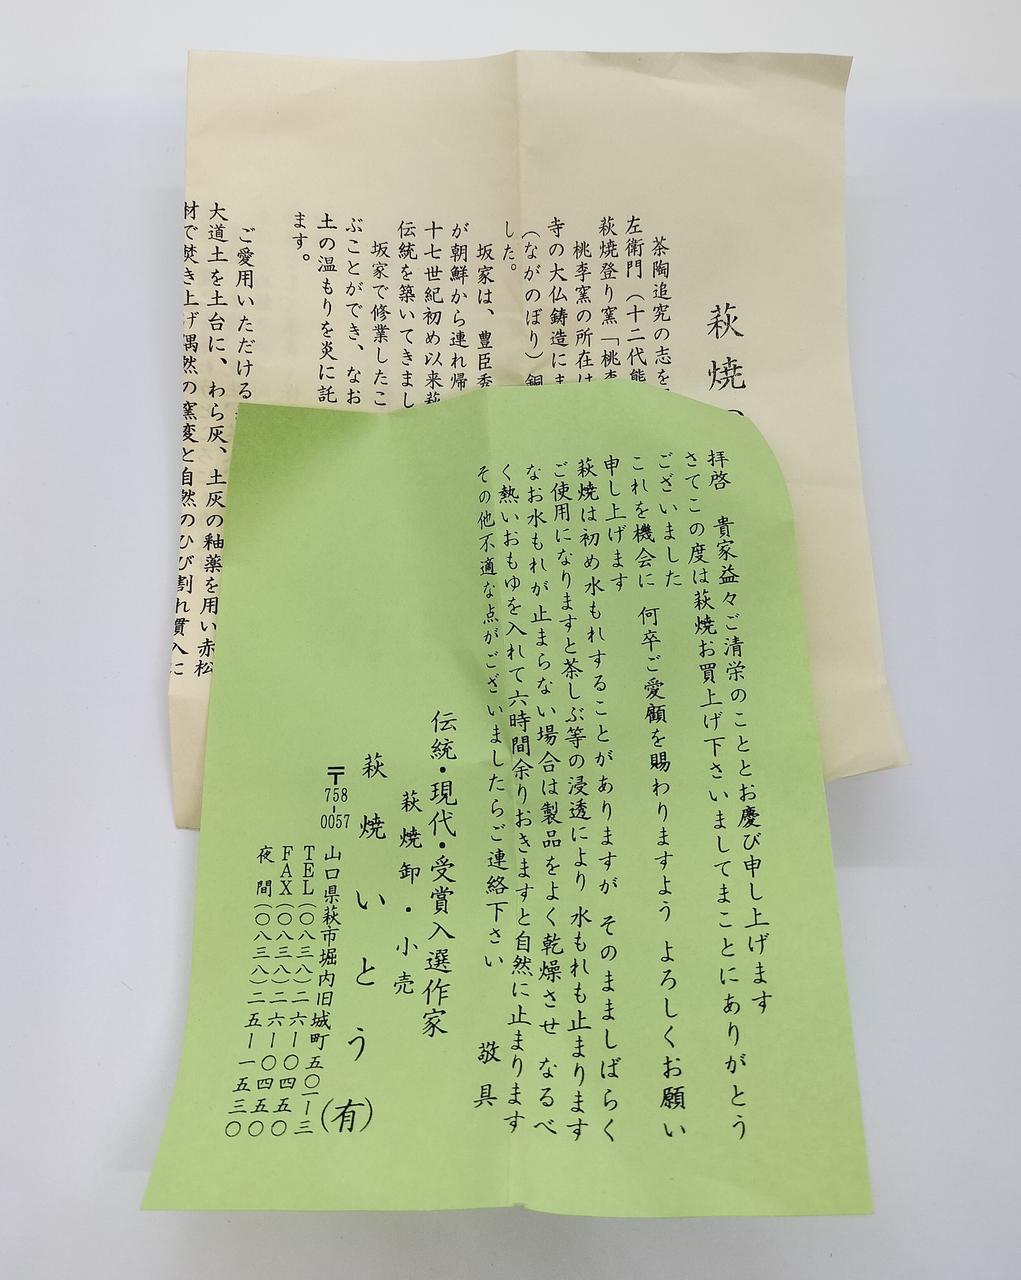 萩焼
茶陶追究の志を
左衛門（十二代
萩焼登り窯「桃李
桃李窯の所在は
寺の大仏鋳造にま
（ながのぼり）銅
した。
坂家は、豊臣秀
が朝鮮から連れ帰
十七世紀初め以来萩
伝統を築いてきまし
坂家で修業したこ
ぶことができ、なお
土の温もりを炎に託
ます。
ご愛用いただける
大道土を土台に、わら灰、土灰の釉薬を用い赤松
材で焚き上げ偶然の窯変と自然のひび割れ貫入に
拝啓　貴家益々ご清栄のこととお慶び申し上げます
さてこの度は萩焼お買上げ下さいましてまことにありがとう
ございました
これを機会に　何卒ご愛顧を賜わりますよう　よろしくお願い
申し上げます
萩焼は初め水もれすることがありますが　そのまましばらく
ご使用になりますと茶しぶ等の浸透により　水もれも止まります
なお水もれが止まらない場合は製品をよく乾燥させ　なるべ
く熱いおもゆを入れて六時間余りおきますと自然に止まります
その他不適な点がございましたらご連絡下さい
敬具
伝統・現代・受賞入選作家
萩焼卸・小売
萩焼いとう(有)
〒758-0057
山口県萩市堀内旧城町五〇一ー三
TEL（〇八三八）二六ー〇四五〇
FAX（〇八三八）二六ー〇四五〇
夜間（〇八三八）二五ー一五三〇